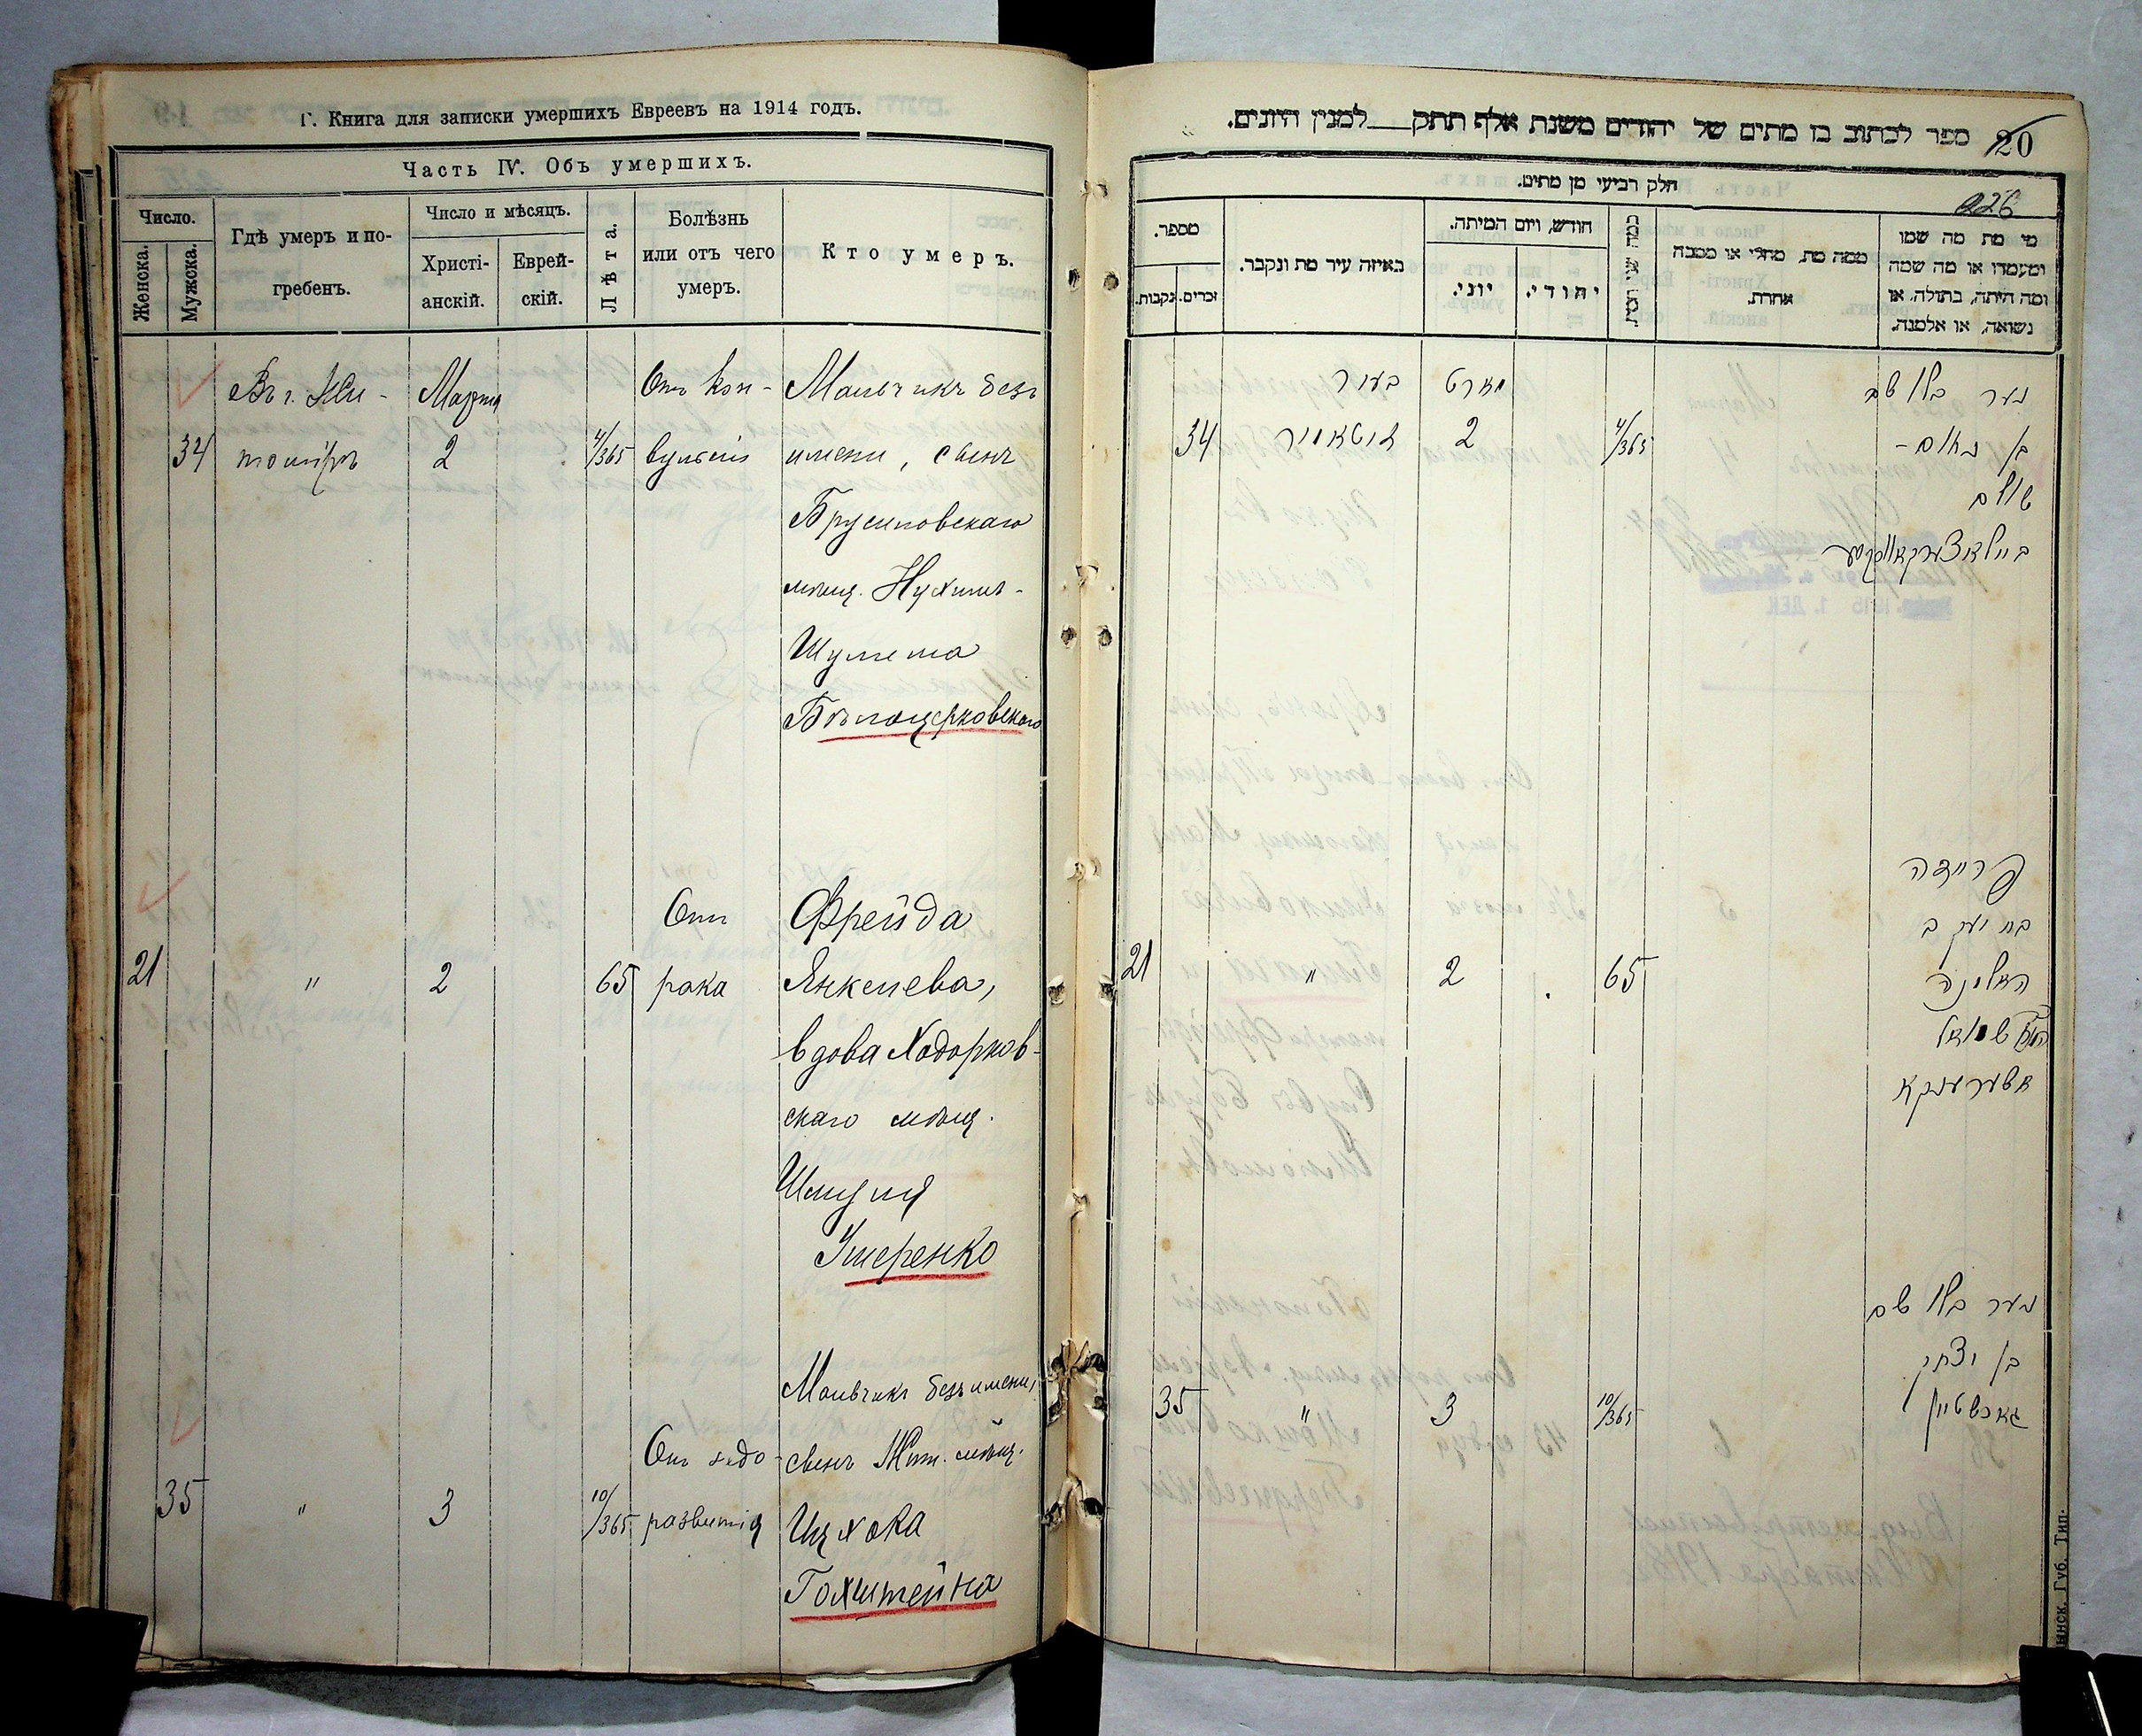 Г. Книга для записки умершихъ Евреевъ на 1914 годъ.
Часть IV. Объ умершихъ.
Число.
Женска.
Мужска.
Гдѣ умеръ и по-
гребенъ.
Число и мѣсяцъ.
Христі-
анскій.
Еврей-
скій.
Лѣта.
Болѣзнь
или отъ чего
умеръ.
Кто умеръ.
Въ г. Жи-
Марта
Отъ кон-
Мальчикъ безъ
34
томірѣ
2
4/365
вульсій
имени, сынъ
Брусиловскаго
мѣщ. Нухима-
Шулема
Бѣлоцерковскаго
Отъ
Фрейда
21
"
2
65
рака
Янкелева,
вдова Ходорков-
скаго мѣщ.
Шмуля
Ушеренко
Мальчикъ безъ имени,
Отъ недо-
сынъ Жит. мѣщ.
35
"
3
10/365
развитія
Ицхока
Гохштейна
ספר לכתוב בו מתים של יהודים משנת אלף תתק למנין היונים.
20
226
חלק רביעי מן מתים.
מספר.
זכרים.
נקבות.
באיזה עיר מת ונקבר.
חודש, ויום המיתה.
יוני.
יהודי.
כמה שני המת
ממה מת, מחלי או מסבה
אחרת.
מי מת מה שמו
ומעמדו או מה שמה
ומה היתה, בתולה, או
נשואה, או אלמנה.
בעיר
מארט
נער בלי שם
34
זיטאמיר
2
4/365
בן נחום-
שולם
ביילאצערקאווסקי
פריידה
בת יעקב
21
"
2
65
האלמנה
שמואל
אשערענקא
נער בלי שם
בן יצחק
35
"
3
10/365
גאכשטיין
инск. Губ. Тип.